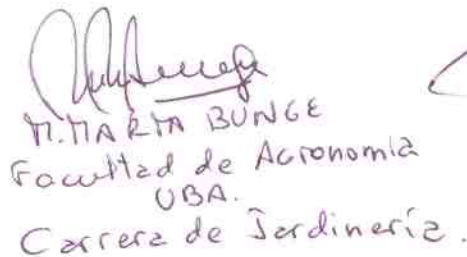 M. MARTA BUNGE
Facultad de Agronomía
UBA.
Carrera de Jardinería.